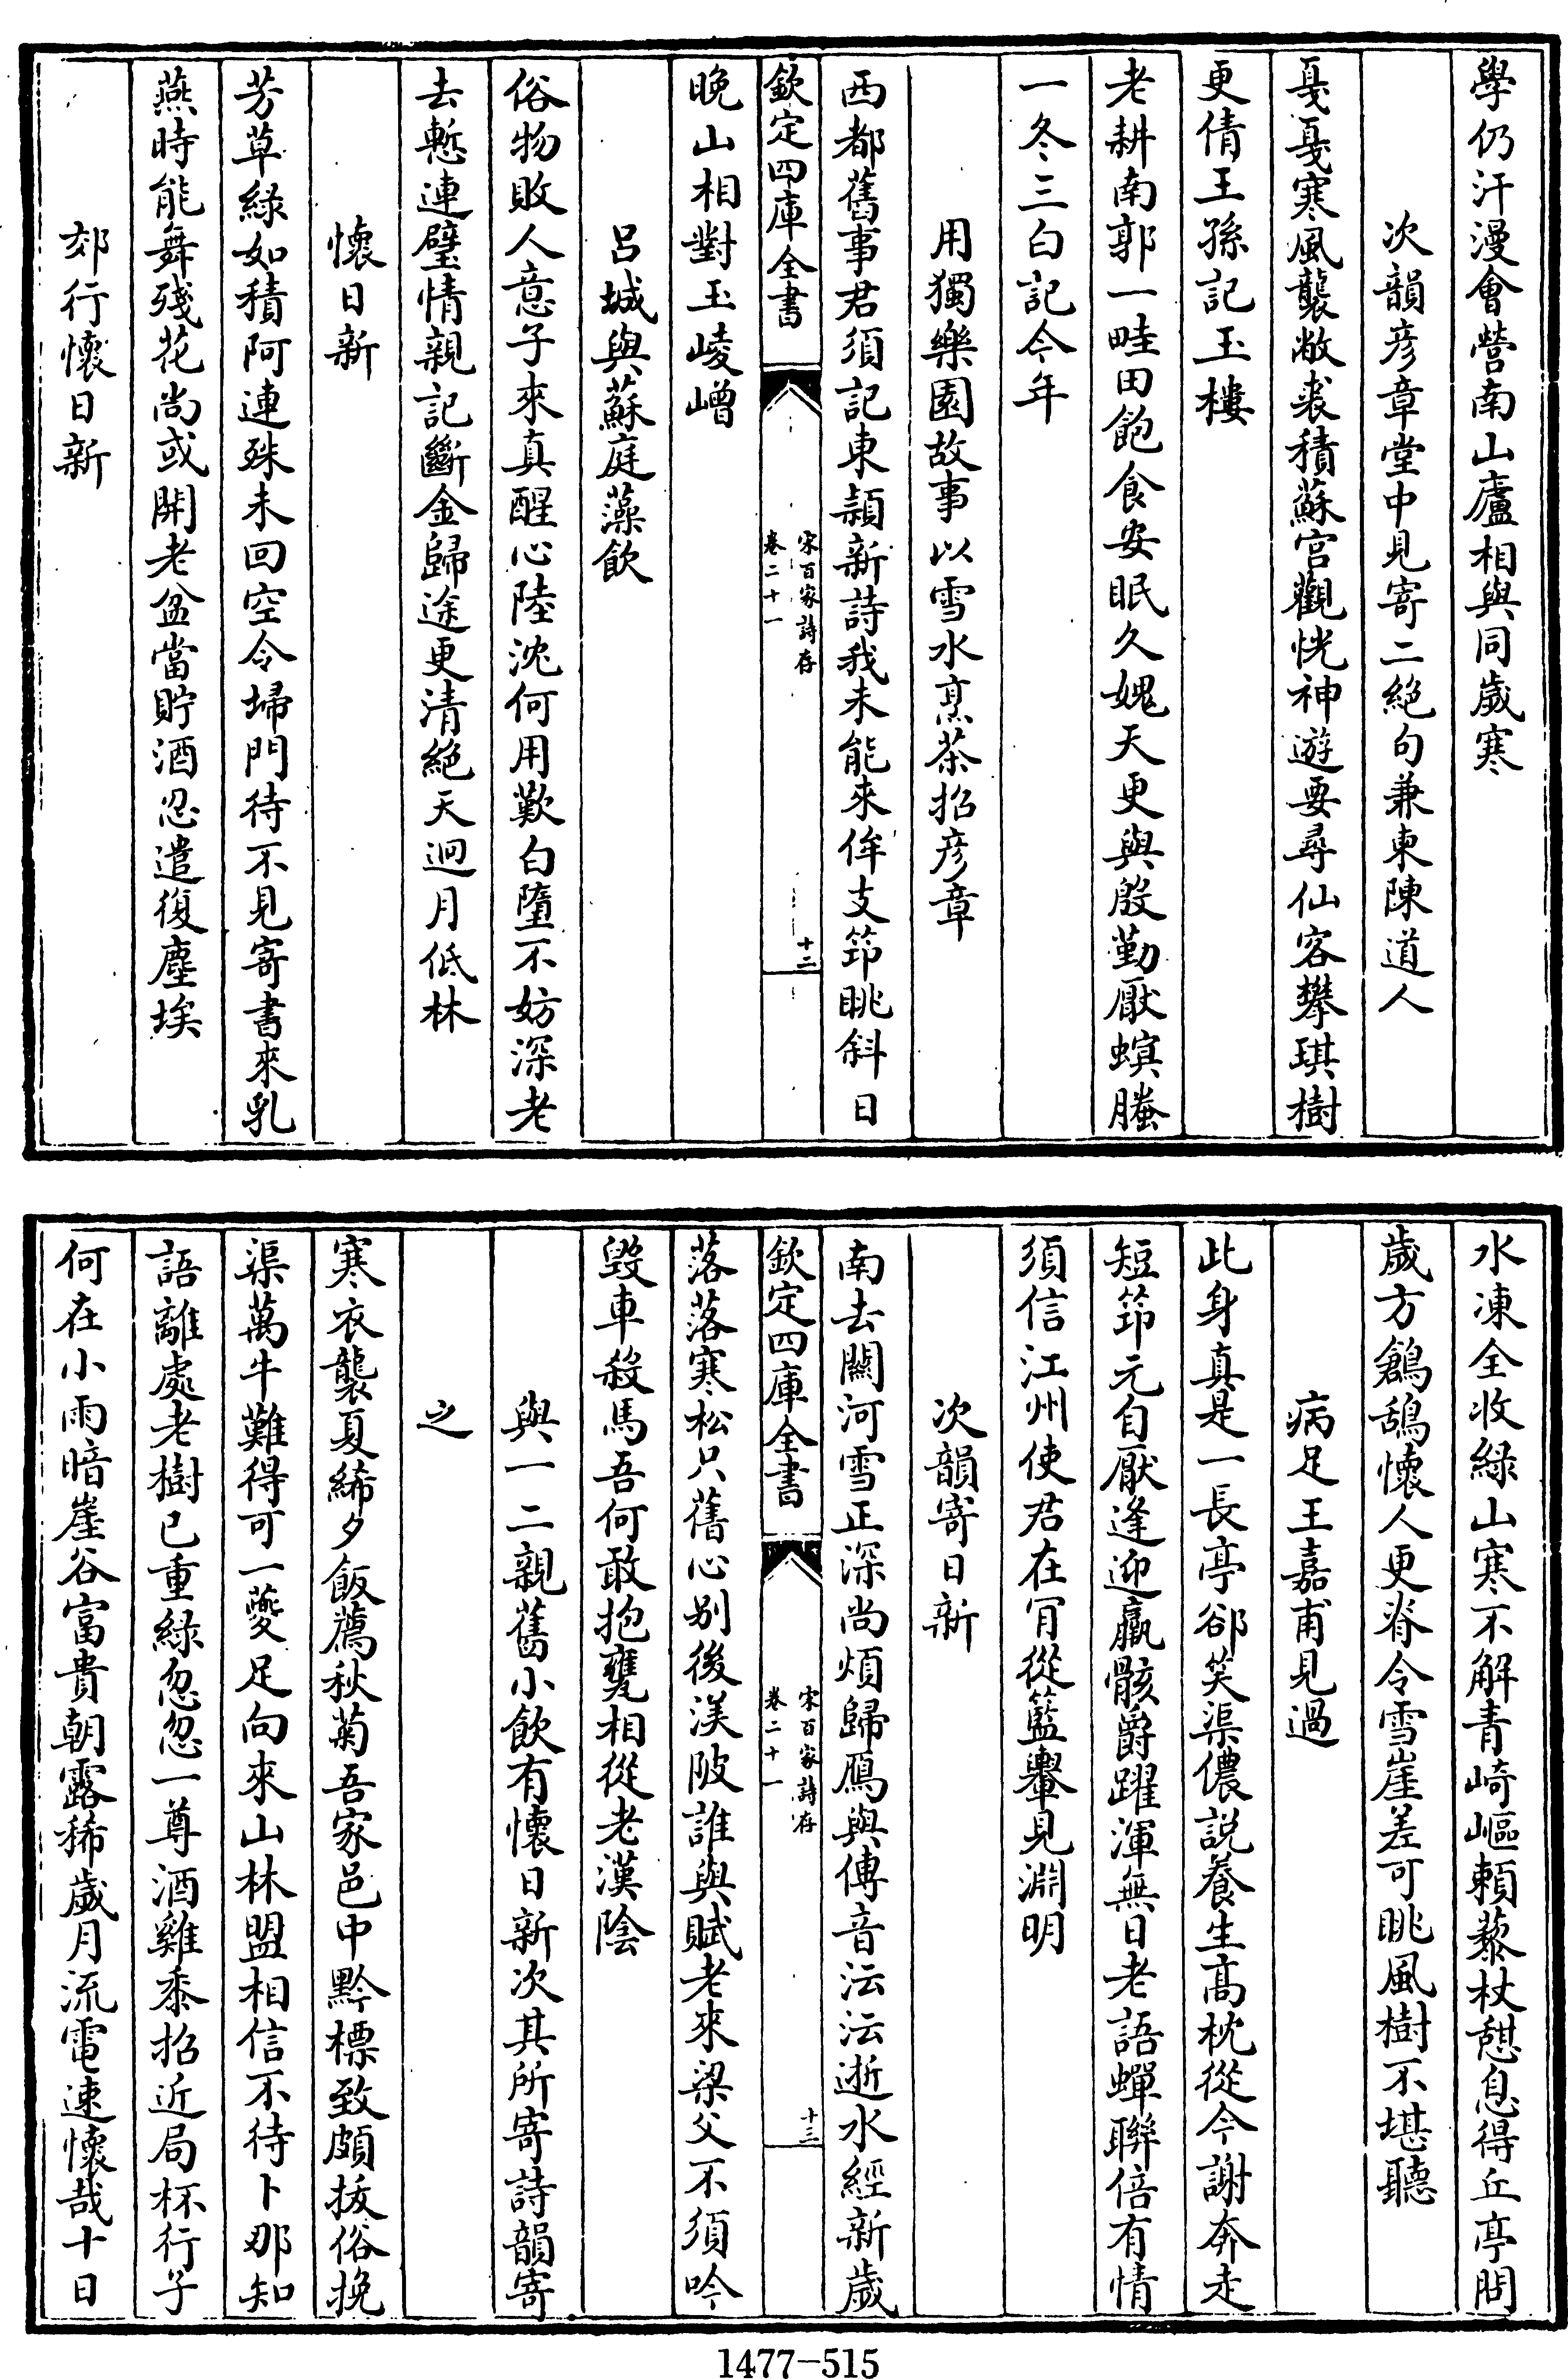 學仍汗漫會營南山廬相與同歲寒
次韻彦章堂中見寄二絶句兼柬陳道人
戛戛寒風襲敝裘積蘇宫觀恍神遊要尋仙客攀琪樹
更倩王孫記玉樓
老耕南郭一畦田飽食安眠久媿天更與殷勤厭螟螣
一冬三白記今年
用獨樂園故事以雪水烹茶招彦章
西都舊事君須記東潁新詩我未能來侔支筇眺斜日
欽定四庫全書
宋百家詩存
卷二十一
十二
晚山相對玉崚嶒
吕城與蘇庭藻飲
俗物敗人意子來真醒心陸沈何用歎白墮不妨深老
去慙連璧情親記斷金歸途更清絶天迥月低林
懷日新
芳草緑如積阿連殊未回空令埽門待不見寄書來乳
燕時能舞殘花尚或開老盆當貯酒忍遣復塵埃
郊行懷日新
水凍全收緑山寒不解青崎嶇賴藜杖憇息得丘亭閲
歲方鶬鴰懷人更脊令雪崖差可眺風樹不堪聽
病足王嘉甫見過
此身真是一長亭郤笑渠儂説養生髙枕從今謝奔走
短筇元自厭逢迎羸骸爵躍渾無日老語蟬聨倍有情
須信江州使君在肎從籃轝見淵明
次韻寄日新
南去闗河雪正深尚煩歸鴈與傳音沄沄逝水經新歲
欽定四庫全書
宋百家詩存
卷二十一
十三
落落寒松只舊心别後渼陂誰與賦老來梁父不須吟
毁車殺馬吾何敢抱甕相從老漢陰
與一二親舊小飲有懷日新次其所寄詩韻寄
之
寒衣襲夏絺夕飯薦秋菊吾家邑中黔標致頗拔俗挽
渠萬牛難得可一夔足向來山林盟相信不待卜那知
語離處老樹已重緑忽忽一尊酒雞黍招近局杯行子
何在小雨暗崖谷富貴朝露稀歲月流電速懷哉十日
1477-515